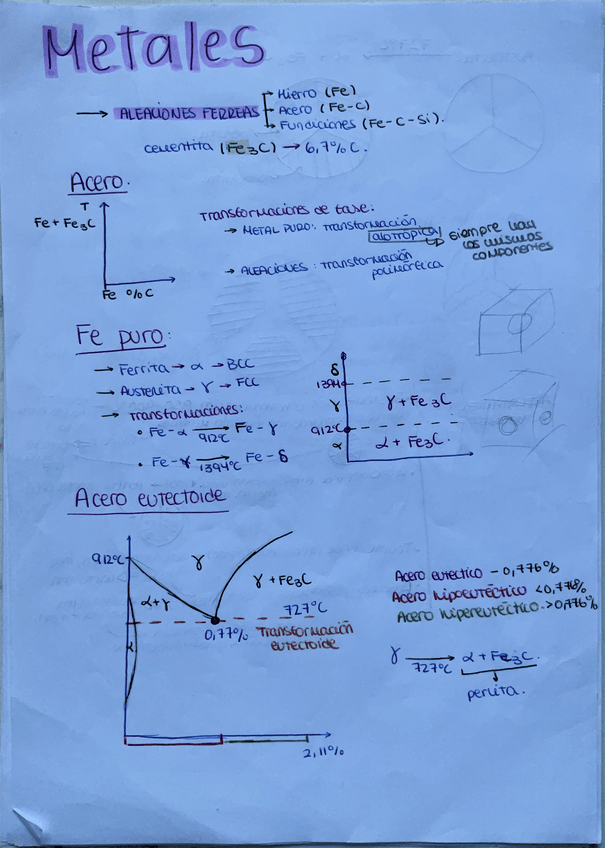 Metales
→ ALEACIONES FERREAS
→ Hierro (Fe)
→ Acero (Fe-C)
→ Fundiciones (Fe-C-Si).
cementita (Fe3C) → 6,7% C.
Acero.
T
Fe + Fe3C
Fe % C
Transformaciones de fase:
→ METAL PURO: Transformación
alotrópica
siempre hay
los mismos
componentes
→ ALEACIONES: Transformación
polimórfica
Fe puro:
→ Ferrita → α → BCC
→ Austenita → γ → FCC
→ Transformaciones:
• Fe-α 912°C → Fe-γ
• Fe-γ 1394°C → Fe-δ
δ
1394
γ
γ + Fe3C
912°C
α
α + Fe3C.
Acero eutectoide
912°C
γ
γ + Fe3C
α+γ
727°C
α
0,77% Transformación
eutectoide
2,11%
Acero eutéctico - 0,776%
Acero hipoeutéctico <0,776%
Acero hipereutéctico >0,776%
γ 727°C → α + Fe3C.
perlita.